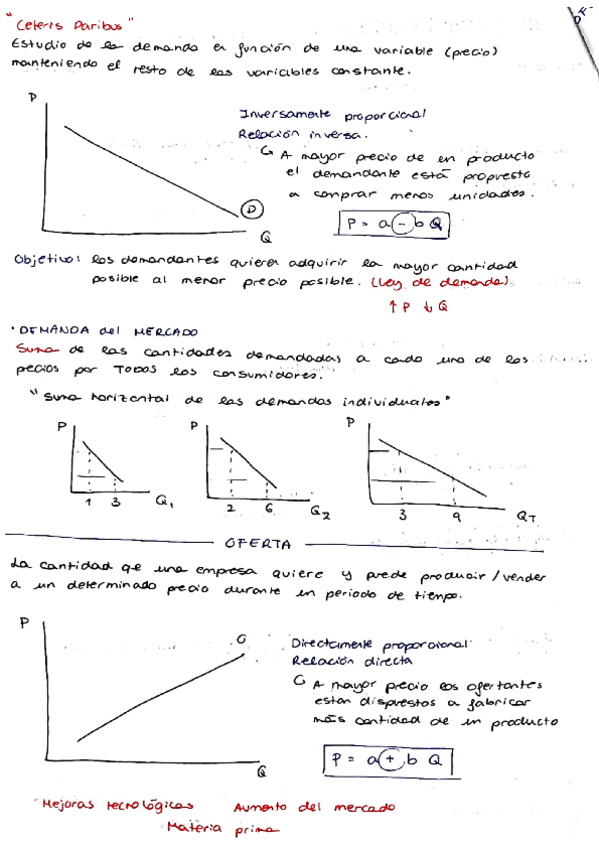 "Ceteris Paribus"
Estudio de la demanda en función de una variable (precio)
manteniendo el resto de las variables constante.
P
Inversamente proporcional
Relación inversa.
A mayor precio de un producto
el demandante está propuesto
a comprar menos unidades.
D
P = a - b Q
Q
Objetivo: los demandantes quieren adquirir la mayor cantidad
posible al menor precio posible. (Ley de demanda).
↑ P ↓ Q
· DEMANDA del MERCADO
Suma de las cantidades demandadas a cada uno de los
precios por TODOS los consumidores.
"Suma horizontal de las demandas individuales"
P P P
1 3 Q1 2 6 Q2 3 9 QT
OFERTA
La cantidad qe una empresa quiere y puede producir / vender
a un determinado precio durante un periodo de tiempo.
P
O
Directamente proporcional
Relación directa
A mayor precio los ofertantes
estan dispuestos a fabricar
más cantidad de un producto
P = a + b Q
Q
Mejoras tecnológicas Aumento del mercado
Materia prima